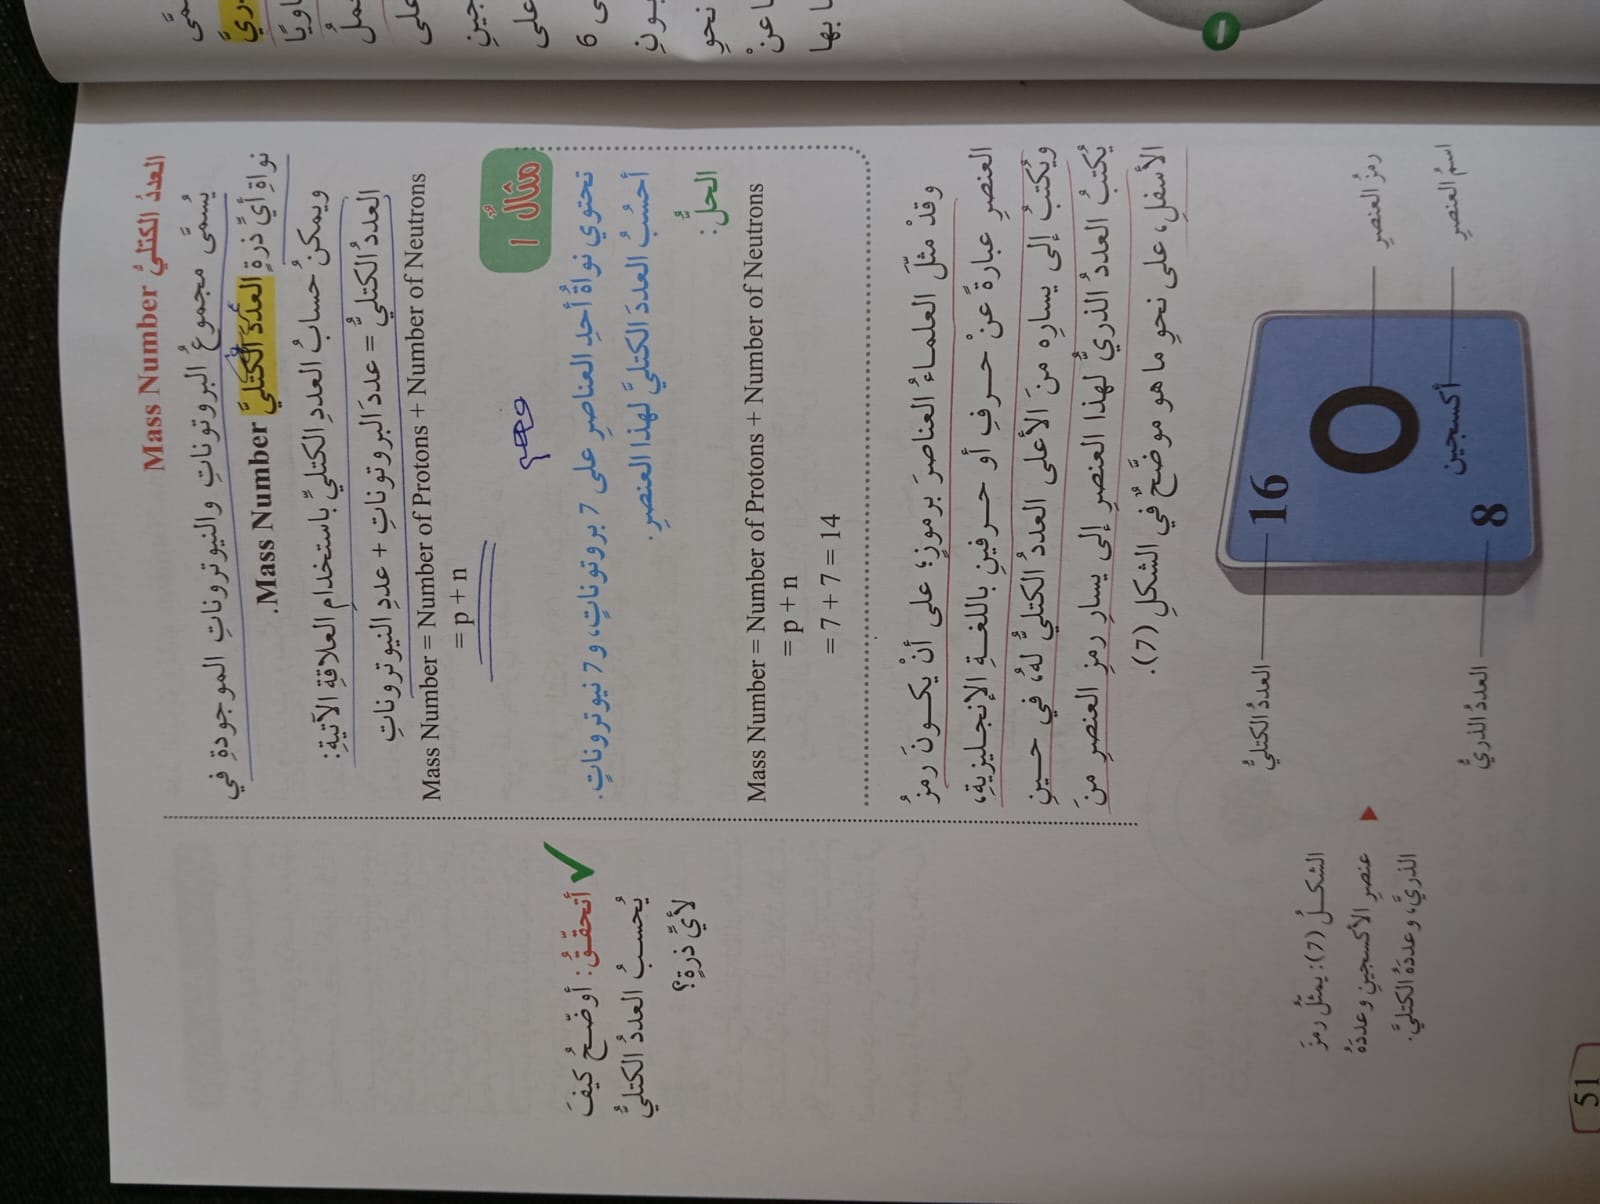 العددُ الكتليُّ Mass Number
يُسمّى مجموعُ البروتوناتِ والنيوتروناتِ الموجودةِ في
نواةِ أيِّ ذرةٍ العددَ الكتليَّ Mass Number.
ويمكنُ حسابُ العددِ الكتليِّ باستخدامِ العلاقةِ الآتيةِ:
العددُ الكتليُّ = عددَ البروتوناتِ + عددِ النيوتروناتِ
Mass Number = Number of Protons + Number of Neutrons
= p + n
مثالٌ 1
تحتوي نواةُ أحدِ العناصرِ على 7 بروتوناتٍ، و 7 نيوتروناتٍ.
أحسُبُ العددَ الكتليَّ لهذا العنصرِ.
الحلُّ:
Mass Number = Number of Protons + Number of Neutrons
= p + n
= 7 + 7 = 14
✓ أتحقّقُ: أوضّحُ كيفَ
يُحسبُ العددُ الكتليُّ
لأيِّ ذرةٍ؟
وقدْ مثّلَ العلماءُ العناصرَ برموزٍ؛ على أنْ يكونَ رمزُ
العنصرِ عبارةً عنْ حرفٍ أو حرفينِ باللغةِ الإنجليزيةِ،
ويُكتبُ إلى يسارِه منَ الأعلى العددُ الكتليُّ لهُ، في حينِ
يُكتبُ العددُ الذريُّ لهذا العنصرِ إلى يسارِ رمزِ العنصرِ منَ
الأسفلِ، على نحوِ ما هو موضَّحٌ في الشكلِ (7).
العددُ الكتليُّ
16
O
رمزُ العنصرِ
أكسجين
اسمُ العنصرِ
8
العددُ الذريُّ
الشكلُ (7): يمثّلُ رمزَ
عنصرِ الأكسجينِ وعددَهُ
الذريَّ، وعددَهُ الكتليَّ.
51